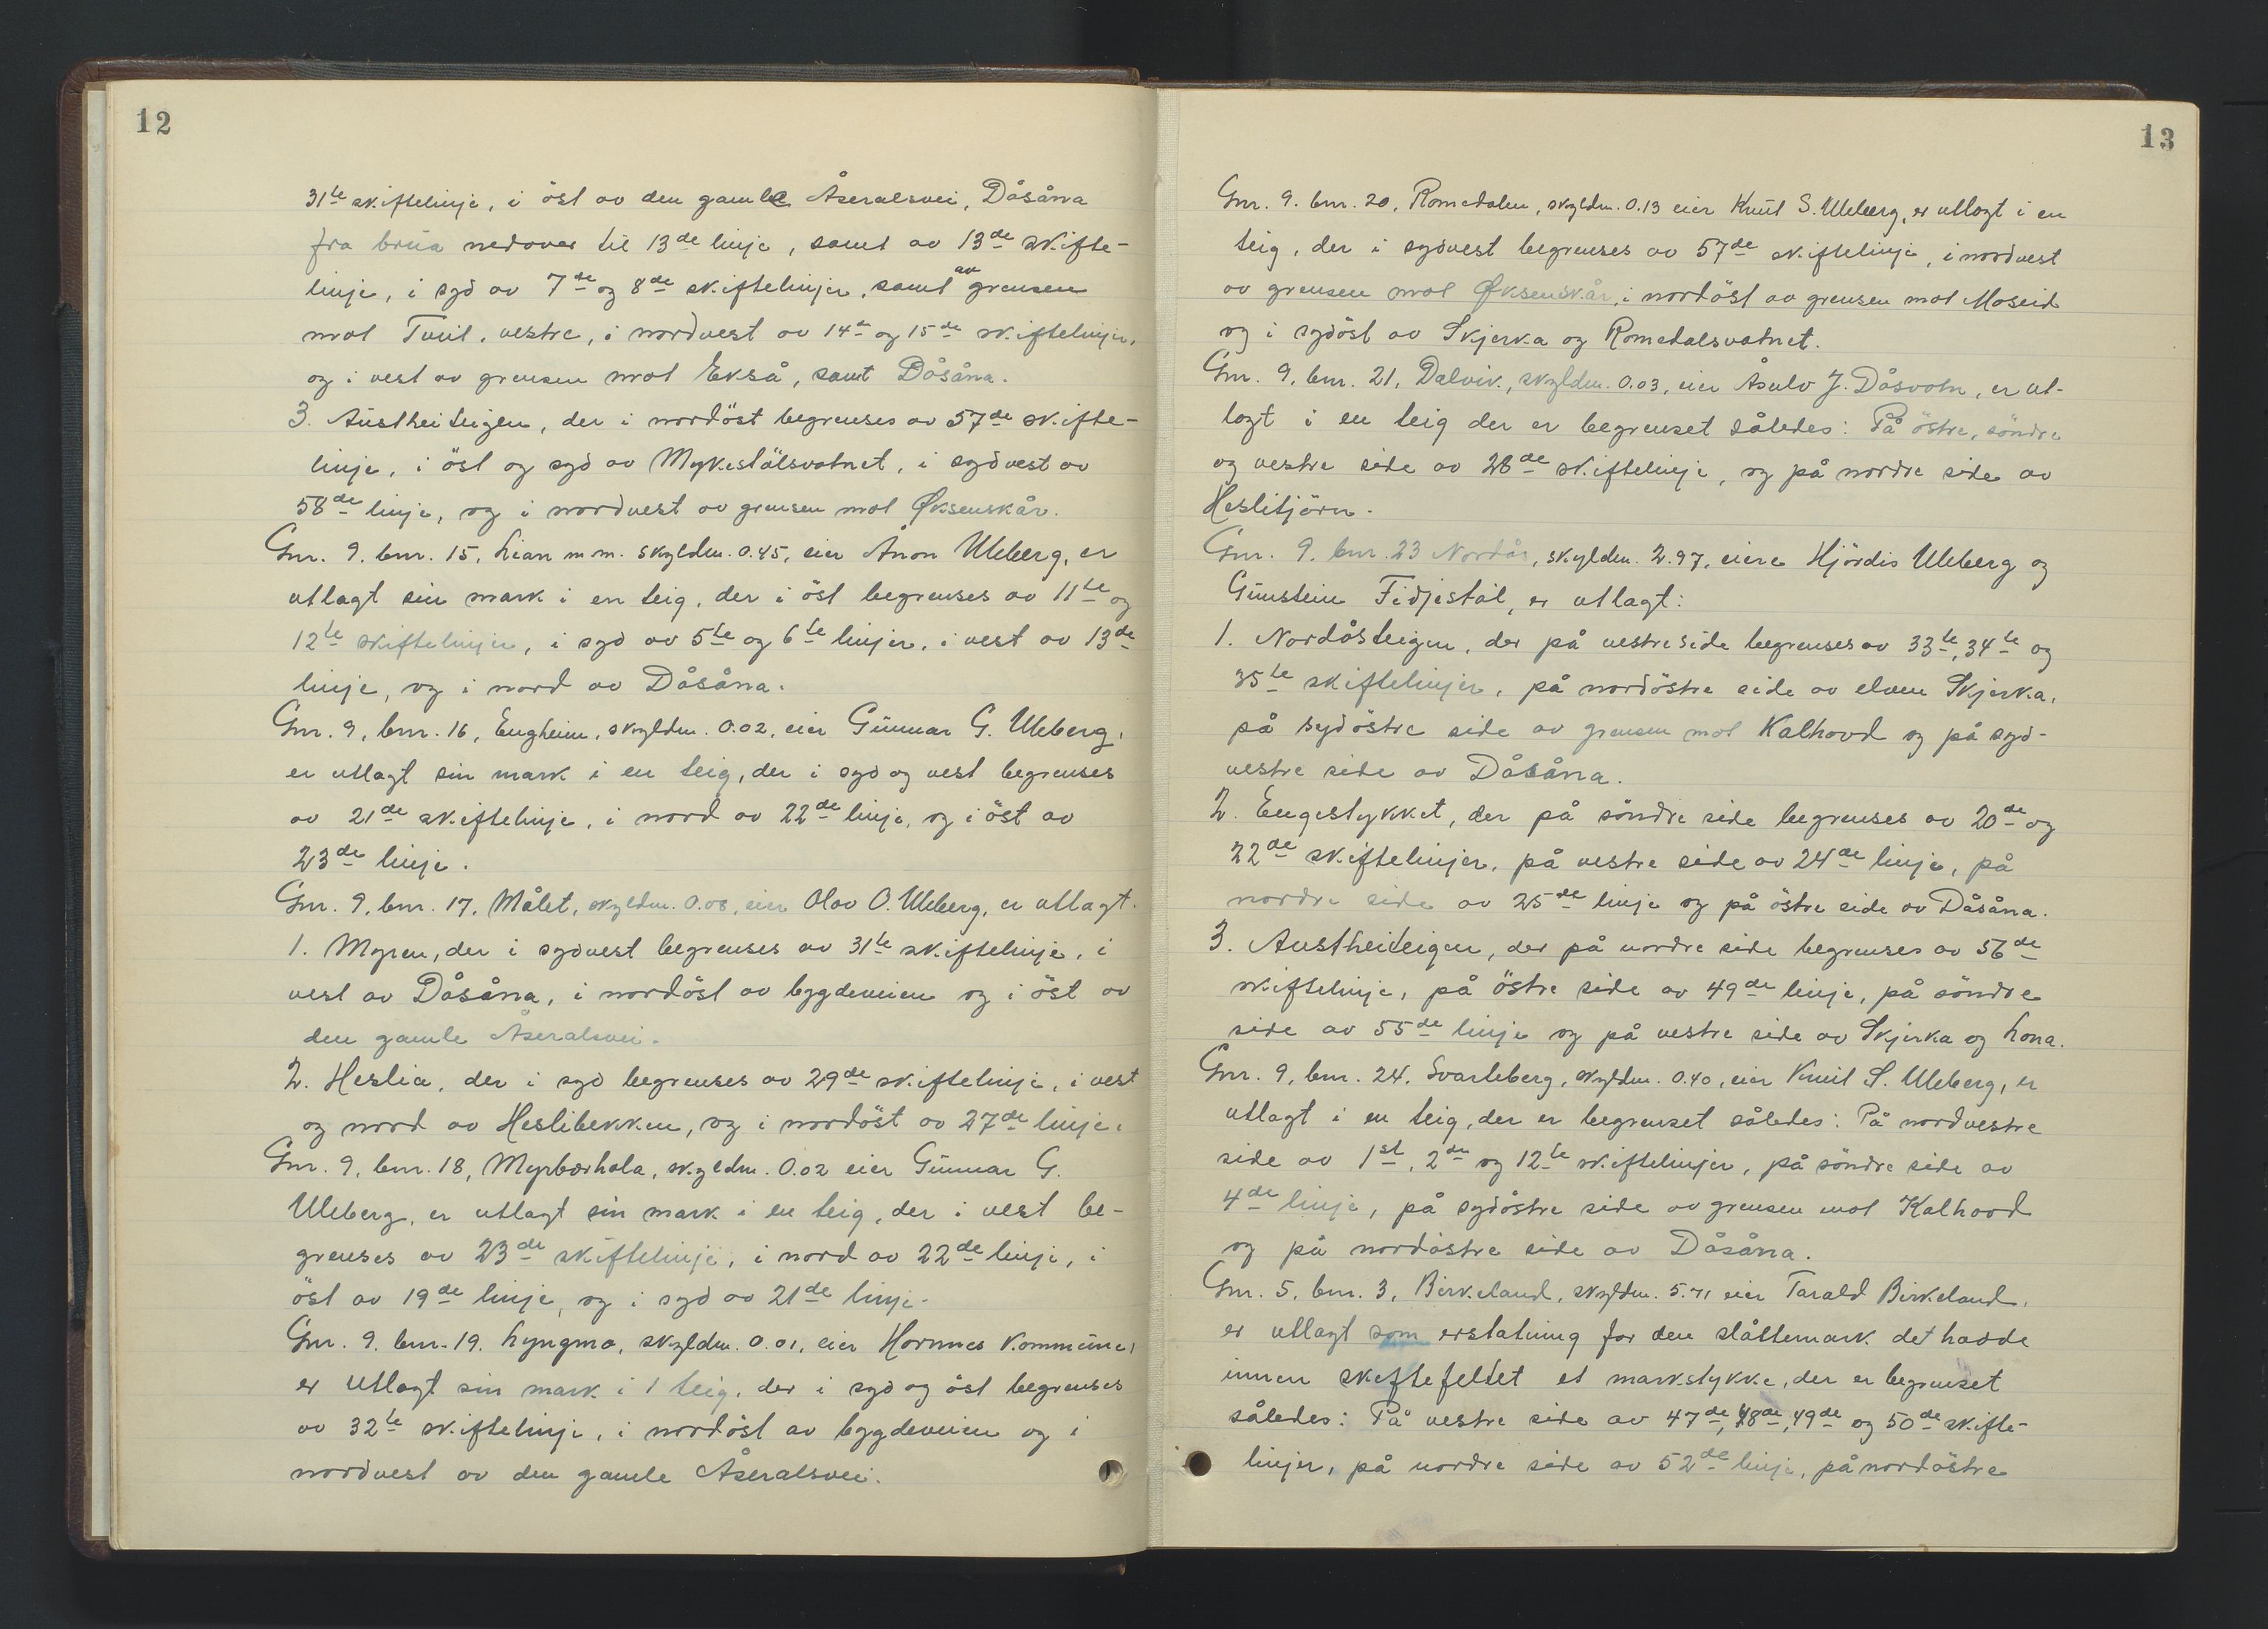 12
31te skiftelinje, i öst av den gamle Åseralsvei, Dåsåna
fra brua nedover til 13de linje, samt av 13de skifte-
linje, i syd av 7de og 8de skiftelinjer, samt av grensen
mot Tveit, vestre, i nordvest av 14de og 15de skiftelinjer,
og i vest av grensen mot Ekså, samt Dåsåna.
3. Austheiteigen, der i nordöst begrenses av 57de skifte-
linje, i öst og syd av Mykestölsvatnet, i sydvest av
58de linje, og i nordvest av grensen mot Øksenskår.
Gnr. 9. bnr. 15, Lian m m. skyldm. 0.45, eier Ånon Uleberg, er
utlagt sin mark i en teig, der i öst begrenses av 11te og
12te skiftelinjer, i syd av 5te og 6te linjer, i vest av 13de
linje, og i nord av Dåsåna.
Gnr. 9, bnr. 16, Engheim, skyldm. 0.02, eier Gunnar G. Uleberg,
er utlagt sin mark i en teig, der i syd og vest begrenses
av 21de skiftelinje, i nord av 22de linje, og i öst av
23de linje.
Gnr. 9, bnr. 17, Målet, skyldm. 0.08, eier Olav O. Uleberg, er utlagt.
1. Myren, der i sydvest begrenses av 31te skiftelinje, i
vest av Dåsåna, i nordöst av bygdeveien og i öst av
den gamle Åseralsvei.
2. Heslia, der i syd begrenses av 29de skiftelinje, i vest
og nord av Heslibekken, og i nordöst av 27de linje.
Gnr. 9, bnr. 18, Myrbærhola, skyldm. 0.02 eier Gunnar G.
Uleberg, er utlagt sin mark i en teig, der i vest be-
grenses av 23de skiftelinje, i nord av 22de linje, i
öst av 19de linje, og i syd av 21de linje.
Gnr. 9. bnr. 19. Lyngmo, skyldm. 0.01, eier Hornnes kommune,
er utlagt sin mark i 1 teig, der i syd og öst begrenses
av 32te skiftelinje, i nordöst av bygdeveien og i
nordvest av den gamle Åseralsvei.
13
Gnr. 9. bnr. 20, Romedalen, skyldm. 0.13 eier Knut S. Uleberg, er utlagt i en
teig, der i sydvest begrenses av 57de skiftelinje, i nordvest
av grensen mot Øksenskår, i nordöst av grensen mot Moseid
og i sydöst av Skjerka og Romedalsvatnet.
Gnr. 9, bnr. 21, Dalvik, skyldm. 0.03, eier Åsulv J. Dåsvatn, er ut-
lagt i en teig der er begrenset således: På östre, söndre
og vestre side av 28de skiftelinje, og på nordre side av
Heslitjörn.
Gnr. 9. bnr. 23 Nordås, skyldm. 2.97, eiere Hjördis Uleberg og
Gunstein Fidjestöl, er utlagt:
1. Nordåsteigen, der på vestre side begrenses av 33te, 34te og
35te skiftelinjer, på nordöstre side av elven Skjerka,
på sydöstre side av grensen mot Kalhovd og på syd-
vestre side av Dåsåna.
2. Engestykket, der på söndre side begrenses av 20de og
22de skiftelinjer, på vestre side av 24de linje, på
nordre side av 25de linje og på östre side av Dåsåna.
3. Austheiteigen, der på nordre side begrenses av 56de
skiftelinje, på östre side av 49de linje, på söndre
side av 55de linje og på vestre side av Skjerka og Lona.
Gnr. 9, bnr. 24, Svarteberg, skyldm. 0.40, eier Knut S. Uleberg, er
utlagt i en teig, der er begrenset således: På nordvestre
side av 1st, 2de og 12te skiftelinjer, på söndre side av
4de linje, på sydöstre side av grensen mot Kalhovd
og på nordöstre side av Dåsåna.
Gnr. 5, bnr. 3, Birkeland, skyldm. 5.71 eier Tarald Birkeland,
er utlagt som erstatning for den slåttemark det hadde
innen skiftefeltet et markstykke, der er begrenset
således: På vestre side av 47de, 48de, 49de og 50de skifte-
linjer, på nordre side av 52de linje, på nordöstre